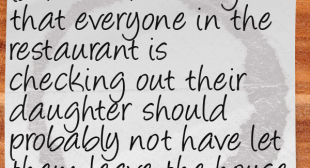 that everyone in the
restaurant is
checking out their
daughter should
probably not have let
them leave the house